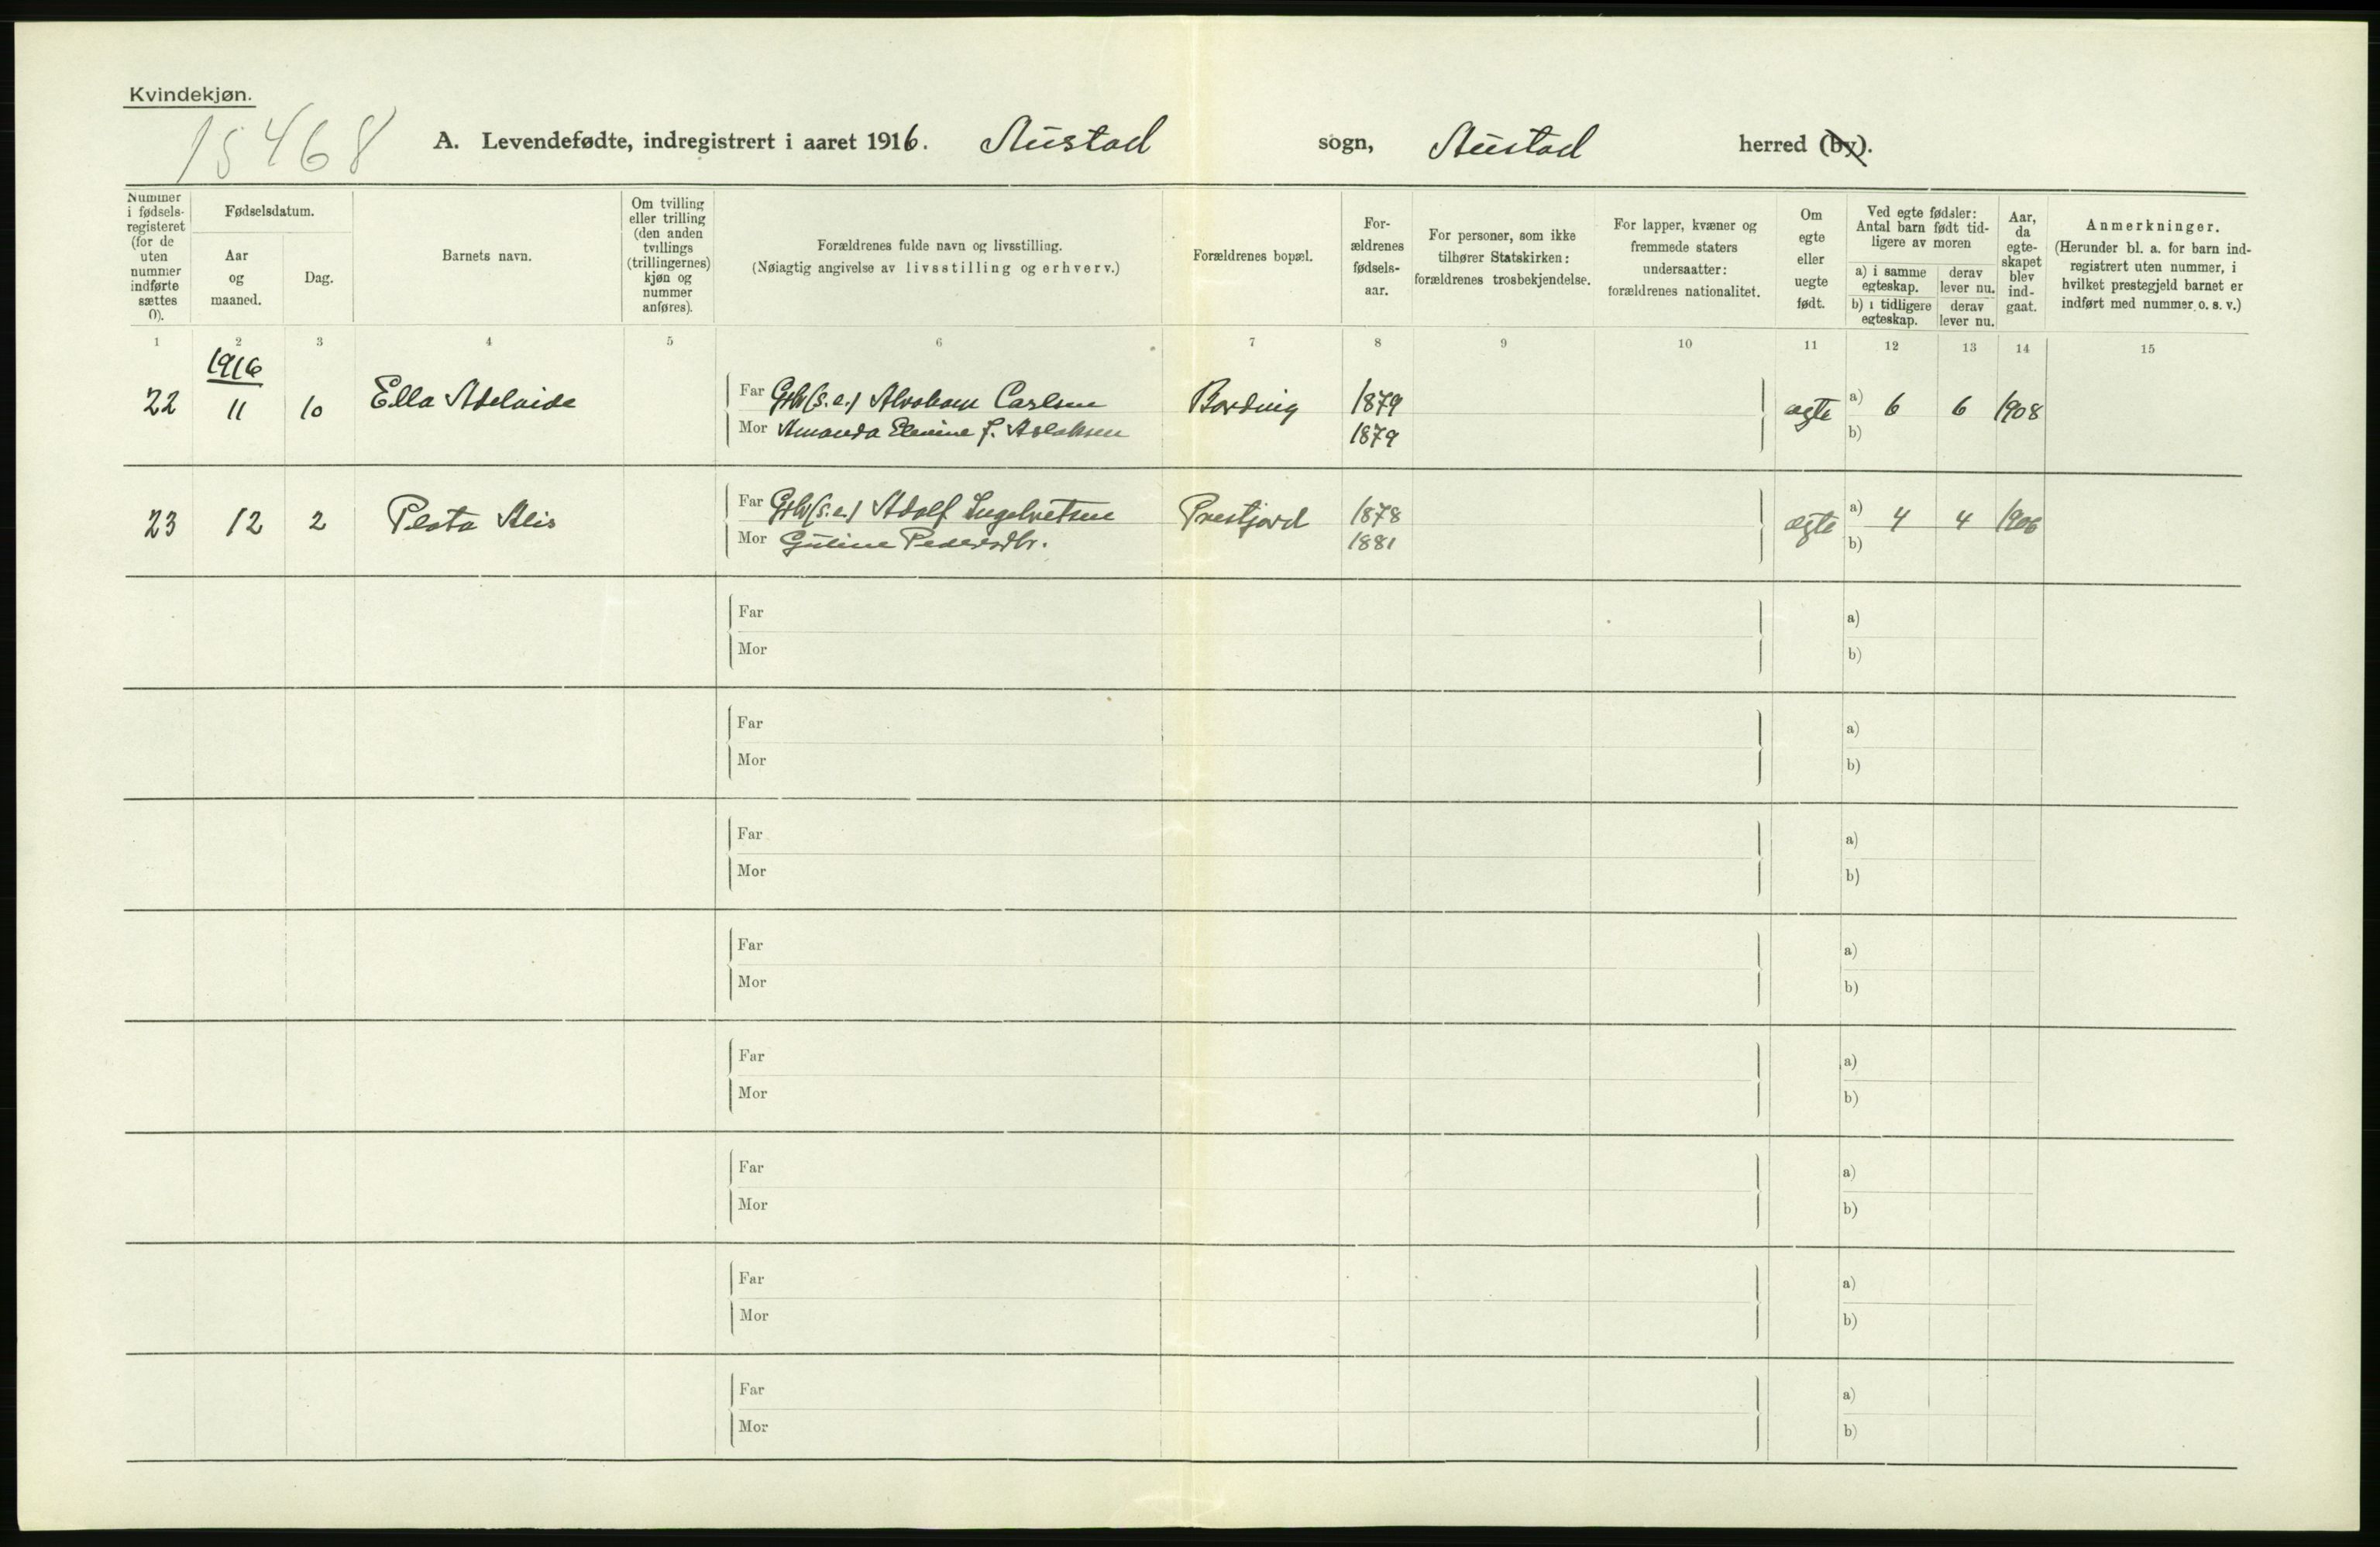 Kvindekjøn.
15468
A. Levendefødte, indregistrert i aaret 1916. Austad sogn, Austad herred (by).
Nummer i fødsels-registeret (for de uten nummer indførte sættes 0).
Fødselsdatum.
Aar og maaned.
Dag.
Barnets navn.
Om tvilling eller trilling (den anden tvillings (trillingernes) kjøn og nummer anføres).
Forældrenes fulde navn og livsstilling.
(Nøiagtig angivelse av livsstilling og erhverv.)
Forældrenes bopæl.
For-ældrenes fødsels-aar.
For personer, som ikke tilhører Statskirken: forældrenes trosbekjendelse.
For lapper, kvæner og fremmede staters undersaatter: forældrenes nationalitet.
Om egte eller uegte født.
Ved egte fødsler: Antal barn født tid-ligere av moren
a) i samme egteskap.
derav lever nu.
b) i tidligere egteskap.
derav lever nu.
Aar, da egte-skapet blev ind-gaat.
Anmerkninger.
(Herunder bl. a. for barn ind-registrert uten nummer, i hvilket prestegjeld barnet er indført med nummer o. s. v.)
1 2 3 4 5 6 7 8 9 10 11 12 13 14 15
1916
22 11 10 Ella Adelaide Far Grbr (s.e.) Abraham Carlsen 1879 egte a) 6 6 1908
Mor Amanda Elenine f. Aslaksen 1879 b)
23 12 2 Alis Far Grbr (s.e.) Adolf Ingebretsen Prestjord 1878 egte a) 4 4 1906
Mor Guline Pedersdtr. 1881 b)
Far a)
Mor b)
Far a)
Mor b)
Far a)
Mor b)
Far a)
Mor b)
Far a)
Mor b)
Far a)
Mor b)
Far a)
Mor b)
Far a)
Mor b)